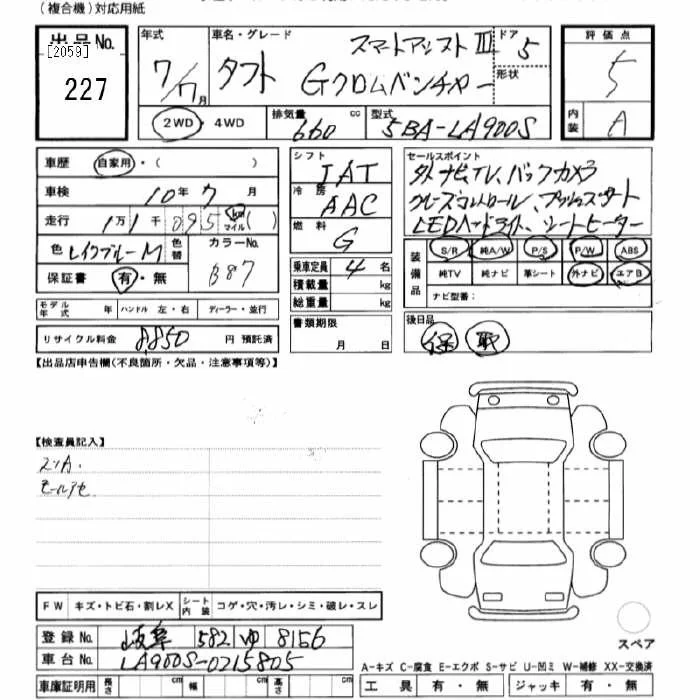 (複合機)対応用紙
出品No.
[2059]
227
年式
7/7月
車名・グレード
スマートアシストⅢ
タフト Gクロムベンチャー
ドア
5
形状
評価点
5
内装
A
2WD・4WD
排気量
660 cc
型式
5BA-LA900S
車歴 自家用・( )
車検 10年7月
走行 1万1千095 km マイル ( )
色 レイクブルーM
色替
カラーNo.
B87
保証書 有・無
モデル年式 年 ハンドル 左・右 ディーラー・並行
リサイクル料金 8,850 円 預託済
シフト
IAT
冷房
AAC
燃料
G
乗車定員 4 名
積載量 kg
総重量 kg
書類期限
月 日
セールスポイント
外ナビ、TV、バックカメラ
クルーズコントロール、プッシュスタート
LEDヘッドライト、シートヒーター
装備品
S/R 純A/W P/S P/W ABS
純TV 純ナビ 革シート 外ナビ エアB
ナビ型番:
後日品
保 取
【出品店申告欄(不良箇所・欠品・注意事項等)】
【検査員記入】
スリA.
モールアセ
FW キズ・トビ石・割レX シート内装 コゲ・穴・汚レ・シミ・破レ・スレ
登録No. 岐阜 582 ゆ 8156
車台No. LA900S-0215805
車庫証明用 長さ cm 幅 cm 高さ cm
スペア
A-キズ C-腐食 E-エクボ S-サビ U-凹ミ W-補修 XX-交換済
工具 有・無 ジャッキ 有・無